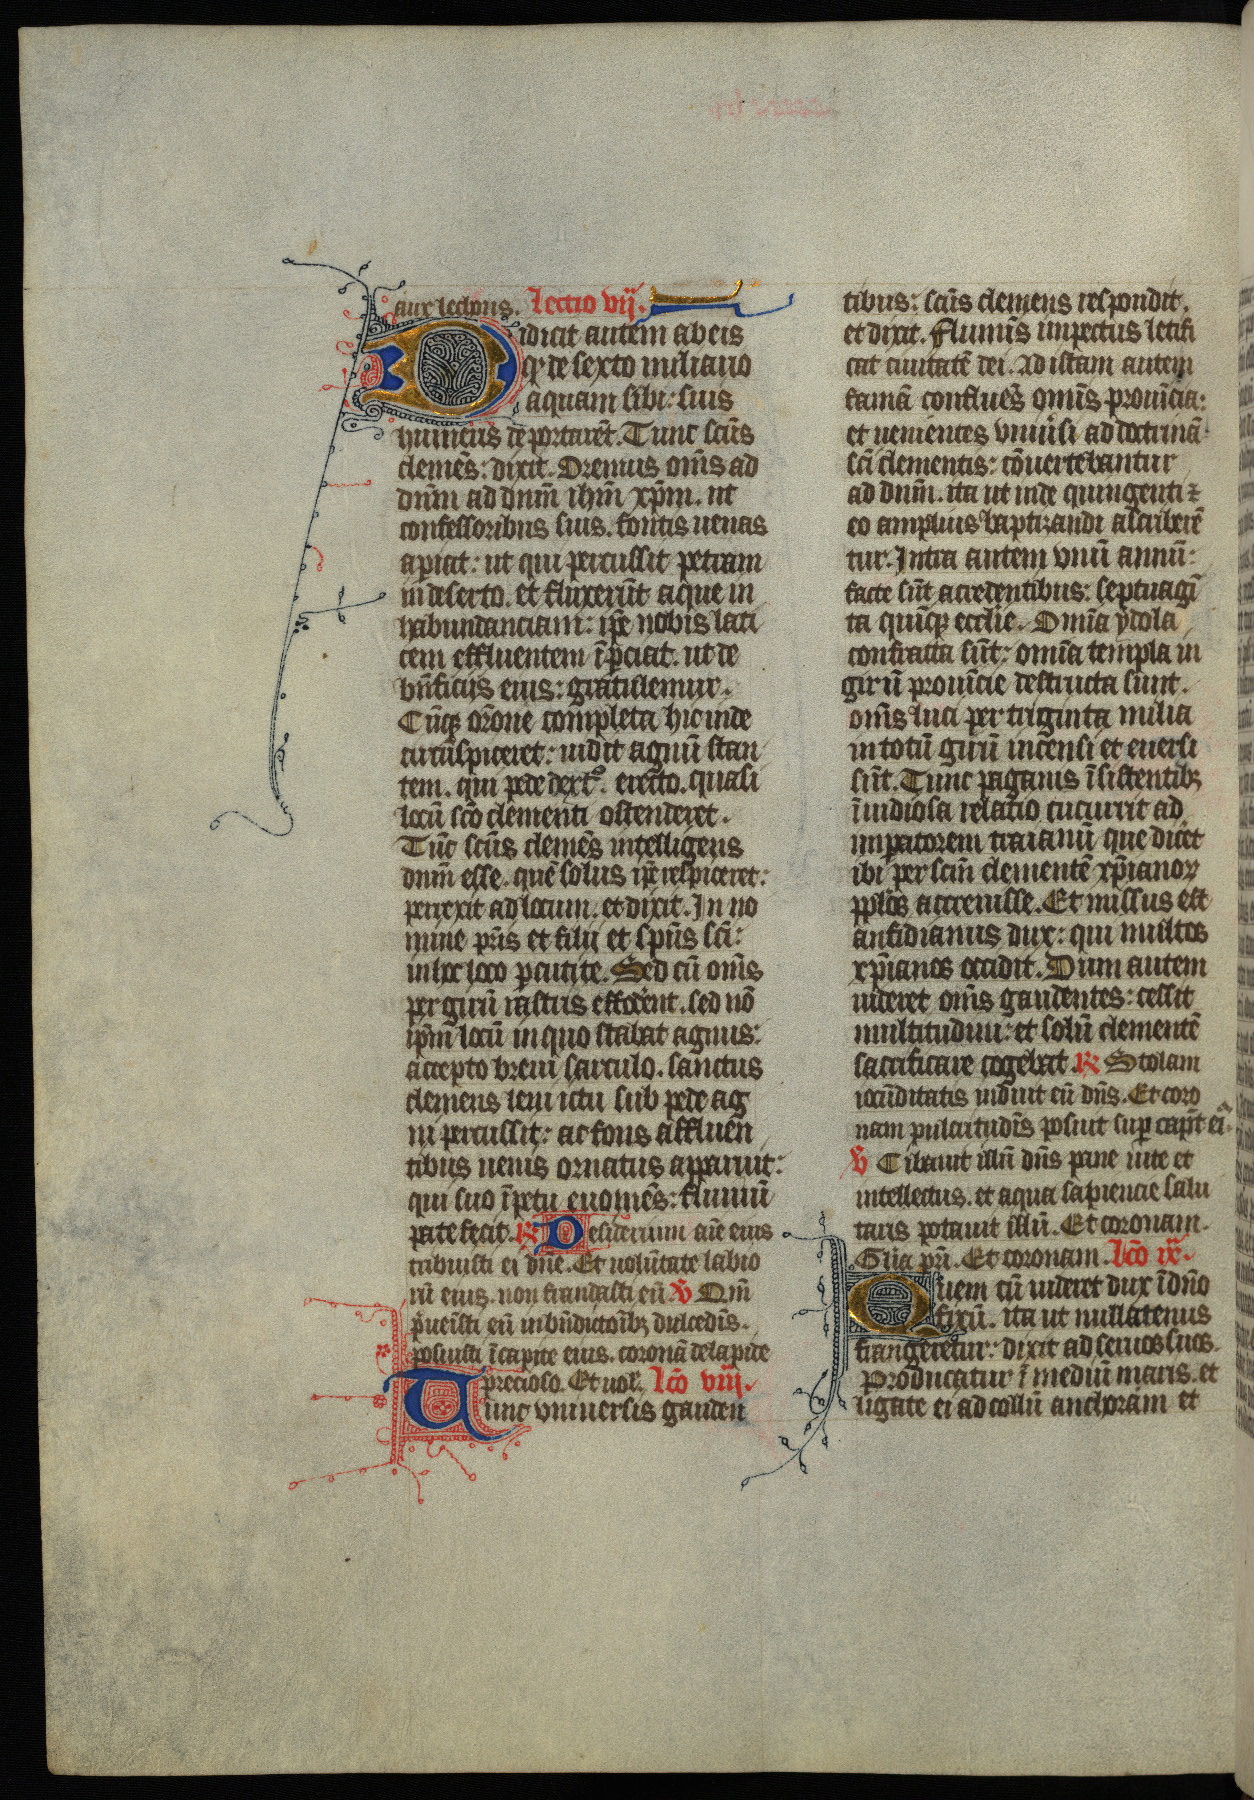 aux lections. Lectio vij.
Didicit autem ab eis
qͥ de sexto miliario
aquam sibi: suis
humeris deportarēt. Tunc scūs
clemēs: dixit. Oremus om̄s ad
dnm̄ ihm̄ xp̄m. ut
confessoribus suis. fontis uenas
apiat: ut qui percussit petram
in deserto. et fluxerūt aque in
habundanciam: ip̄e nobis lati
cem effluentem īpciat. ut de
bn̄ficijs eius: gratulemur.
Cūqꝫ orōne completa hic inde
circūspiceret: uidit agnū stan
tem. qui pede dextᵒ. erecto. quasi
locū scō clementi ostenderet.
Tūc scūs clemēs intelligens
dnm̄ esse. quē solus ip̄e respiceret:
perrexit ad locum. et dixit. In no
mine pr̄is et filij et sp̄us sc̄i:
in hoc loco pcutite. Sed cū om̄s
per girū rastris effoderent. sed nō
ip̄m locū in quo stabat agnus:
accepto breui sarculo. sanctus
clemens leui ictu sub pede ag
ni percussit: ac fons affluen
tibus uenis ornatus apparuit:
qui suo īpetu euomēs: fluuiū
patefecit. R Desiderium aīe eius
tribuisti ei dn̄e. Et uolūtate labio
rū eius. non fraudasti eū V Qm̄
p̄uenisti eū in bn̄dictōibꝫ dulcedīs.
posuisti ī capite eius. coronā de lapide
precioso. Et uol. Lc̄o viij.
Tunc vniuersis gauden
tibus: scūs clemens respondit.
et dixit. Flumīs impetus letifi
cat ciuitatē dei. Ad istam autem
famā confluēs om̄is prouīcia:
et uenientes vniuersi ad doctrinā
sc̄i clementis: cōuertebantur
ad dnm̄. ita ut inde quingenti ⁊
eo amplius baptizandi ascriberē
tur. Intra autem vnū annū:
facte sūt a credentibus: septuagī
ta quīqꝫ ecclie. Omīa ydola
confracta sūt: omīa templa in
girū prouīcie destructa sunt.
om̄s luci per triginta milia
in totū girū incensi et euersi
sūt. Tunc paganis īsistentibꝫ
īuidiosa relatio cucurrit ad
imꝑatorem traianū que dicēt
ibi per scm̄ clementē xp̄ianoꝝ
pplōs accreuisse. Et missus est
aufidianus dux: qui multos
xp̄ianos occidit. Dum autem
uideret om̄s gaudentes: cessit
multitudini: et solū clementē
sacrificare cogebat. R Stolam
iocūditatis induit eū dn̄s. Et coro
nam pulcritudīs posuit sup caput eī.
V Cibauit illū dn̄s pane uite et
intellectus. et aqua sapiencie salu
taris potauit illū. Et coronam.
Glīa pr̄i. Et coronam. Lc̄o ix.
Quem cū uideret dux ī dn̄o
fixū. ita ut nullatenus
frangeretur: dixit ad seruos suos.
Producatur ī mediū maris. et
ligate ei ad collū anchoram et